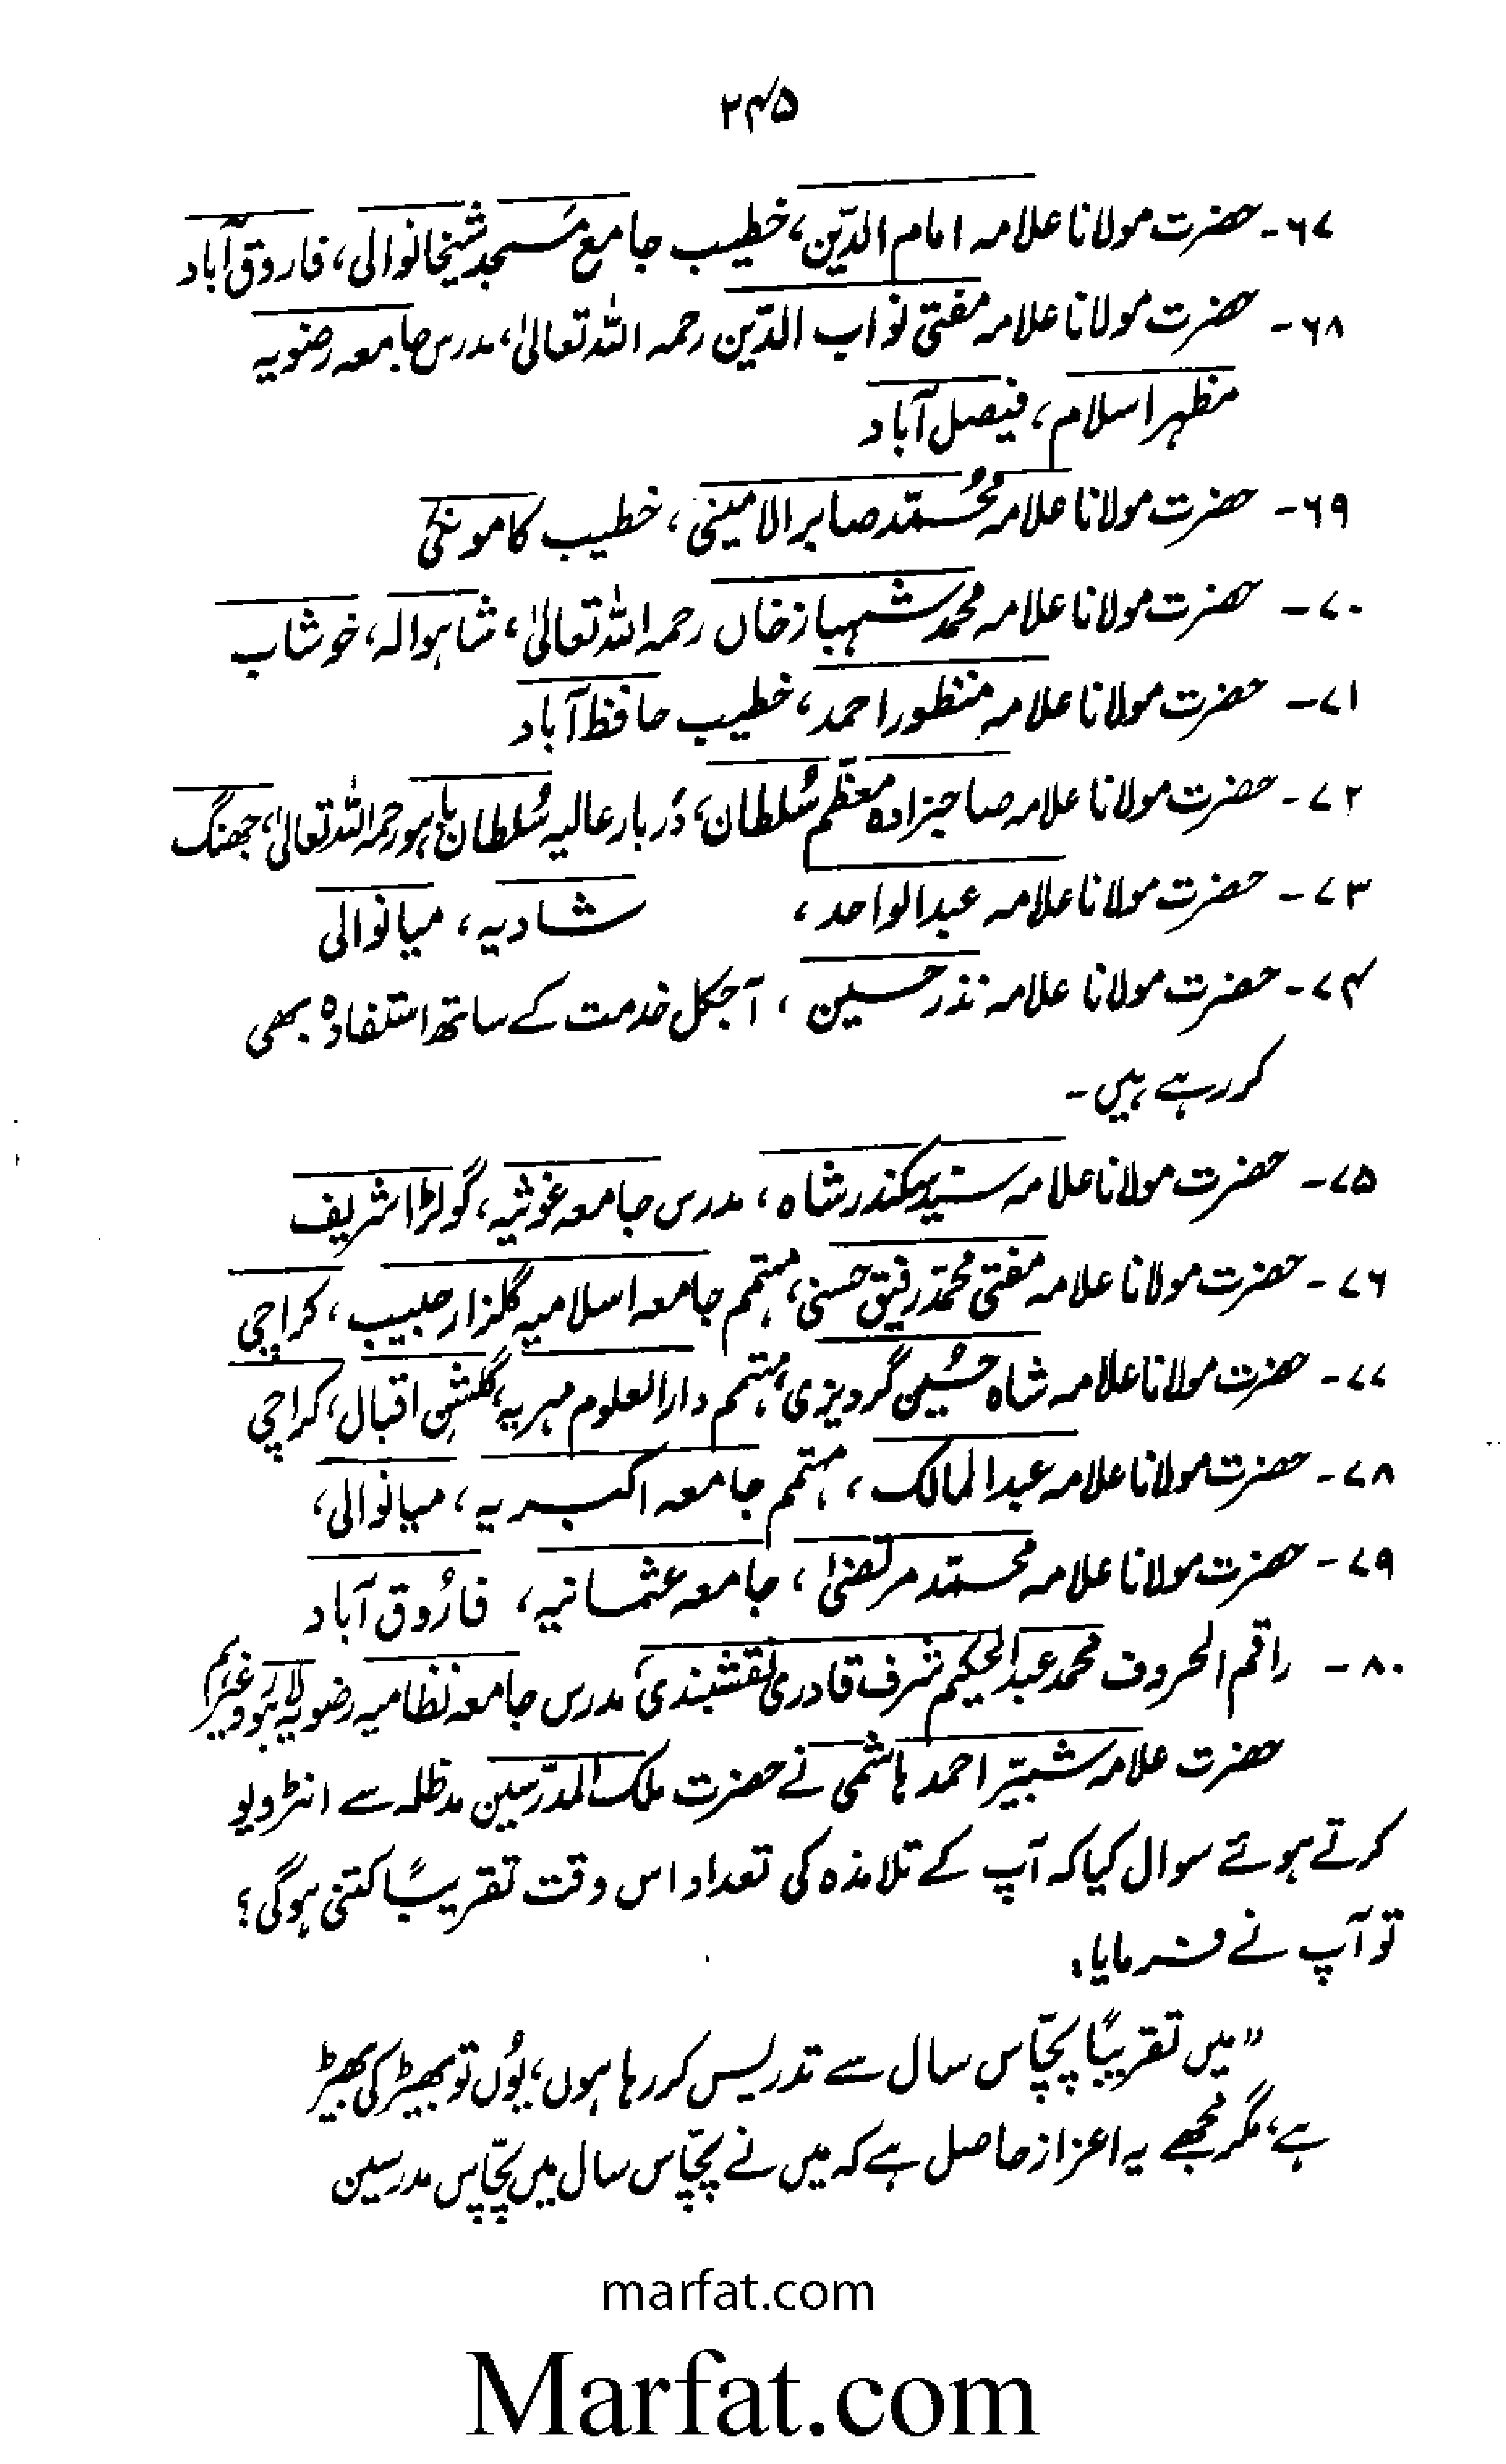 ۲۴۵
۶۷- حضرت مولانا علامہ امام الدّین، خطیب جامع مسجد شیخانوالی، فاروق آباد
۶۸- حضرت مولانا علامہ مفتی نواب الدّین رحمہ اللہ تعالیٰ، مدرس جامعہ رضویہ
مظہر اسلام، فیصل آباد
۶۹- حضرت مولانا علامہ محمّد صابر الامینی، خطیب کامونکی
۷۰- حضرت مولانا علامہ محمد شہباز خاں رحمہ اللہ تعالیٰ، شاہوالہ، خوشاب
۷۱- حضرت مولانا علامہ منظور احمد، خطیب حافظ آباد
۷۲- حضرت مولانا علامہ صاحبزادہ معظّم سُلطان، دربار عالیہ سُلطان باہو رحمہ اللہ تعالیٰ، جھنگ
۷۳- حضرت مولانا علامہ عبدالواحد، شادیہ، میانوالی
۷۴- حضرت مولانا علامہ نذر حسین، آجکل خدمت کے ساتھ استفادہ بھی
کر رہے ہیں-
۷۵- حضرت مولانا علامہ سیّد سکندر شاہ، مدرس جامعہ غوثیہ، گولڑا شریف
۷۶- حضرت مولانا علامہ مفتی محمّد رفیق حسنی، مہتمم جامعہ اسلامیہ گلزار حبیب، کراچی
۷۷- حضرت مولانا علامہ شاہ حُسین گردیزی، مہتمم دارالعلوم مہریہ، گلشنِ اقبال، کراچی
۷۸- حضرت مولانا علامہ عبدالمالک، مہتمم جامعہ اکبریہ، میانوالی،
۷۹- حضرت مولانا علامہ محمّد مرتضیٰ، جامعہ عثمانیہ، فارُوق آباد
۸۰- راقم الحروف محمد عبدالحکیم شرف قادری نقشبندی، مدرس جامعہ نظامیہ رضویہ لاہور وغیرہم
حضرت علامہ شبیّر احمد ہاشمی نے حضرت ملک المدرّسین مدظلہ سے انٹرویو
کرتے ہوئے سوال کیا کہ آپ کے تلامذہ کی تعداد اس وقت تقریبًا کتنی ہوگی؟
تو آپ نے فرمایا:
"میں تقریبًا پچّاس سال سے تدریس کر رہا ہوں، یُوں تو بھیڑ کی بھیڑ
ہے، مگر مُجھے یہ اعزاز حاصل ہے کہ میں نے پچّاس سال میں پچّاس مدرسین
marfat.com
Marfat.com